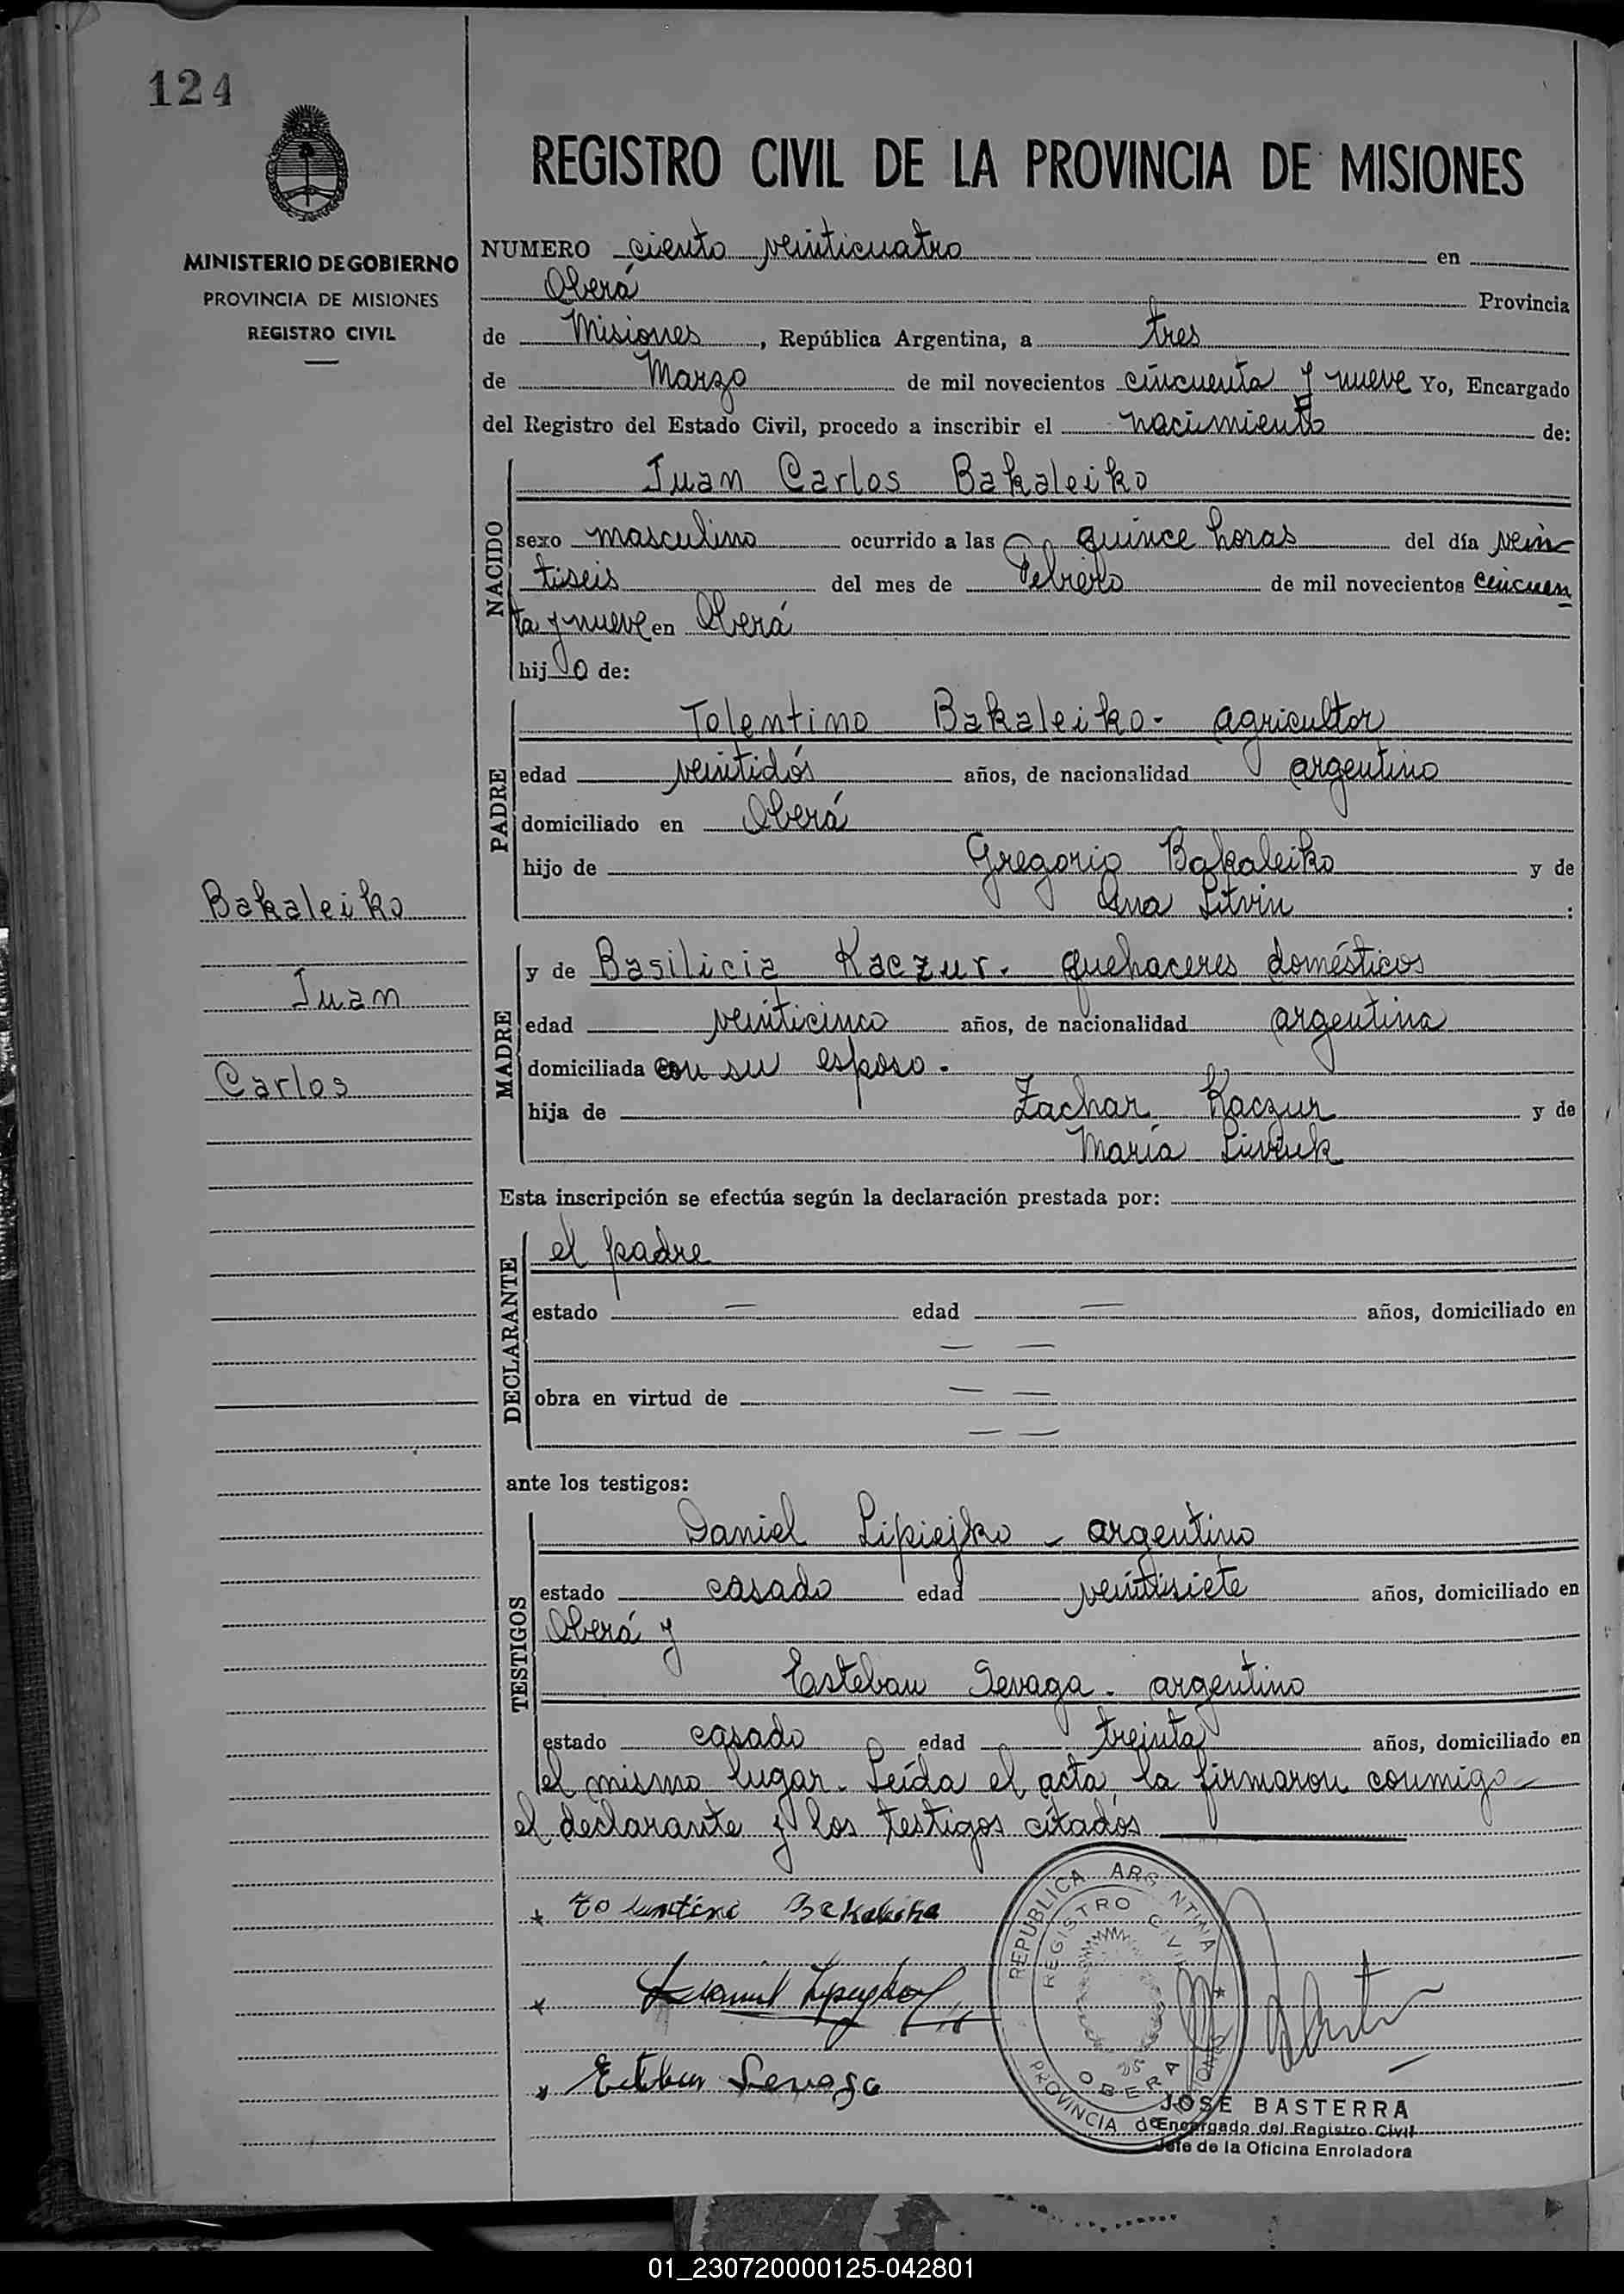 124
REGISTRO CIVIL DE LA PROVINCIA DE MISIONES
MINISTERIO DE GOBIERNO
PROVINCIA DE MISIONES
REGISTRO CIVIL
NUMERO ciento veinticuatro en
Oberá Provincia
de Misiones, República Argentina, a tres
de Marzo de mil novecientos cincuenta y nueve Yo, Encargado
del Registro del Estado Civil, procedo a inscribir el nacimiento de:
NACIDO
Juan Carlos Bakaleiko
sexo masculino ocurrido a las quince horas del día vein
tiseis del mes de Febrero de mil novecientos cincuen
ta y nueve en Oberá
hijo de:
PADRE
Tolentino Bakaleiko - agricultor
edad veintidós años, de nacionalidad argentino
domiciliado en Oberá
hijo de Gregorio Bakaleiko y de
Ana Litvin :
Bakaleiko
Juan
Carlos
MADRE
y de Basilicia Kaczur - quehaceres domésticos
edad veinticinco años, de nacionalidad argentina
domiciliada con su esposo.
hija de Zachar Kaczur y de
María
Esta inscripción se efectúa según la declaración prestada por:
DECLARANTE
el padre
estado — edad — años, domiciliado en
— —
obra en virtud de — —
— —
ante los testigos:
TESTIGOS
Daniel Lipiejko - argentino
estado casado edad veintisiete años, domiciliado en
Oberá y
Esteban Sevaga - argentino
estado casado edad treinta años, domiciliado en
el mismo lugar. Leída el acta la firmaron conmigo
el declarante y los testigos citados
Esteban Sevaga
REPUBLICA ARGENTINA
REGISTRO CIVIL
OBERA
PROVINCIA de MISIONES
JOSE BASTERRA
Encargado del Registro Civil
Jefe de la Oficina Enroladora
01_230720000125-042801